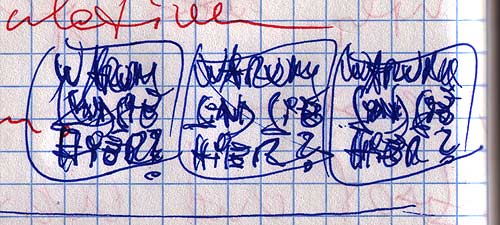 WARUM WARUM WARUM
SIND SIE SIND SIE SIND SIE
HIER? HIER? HIER?